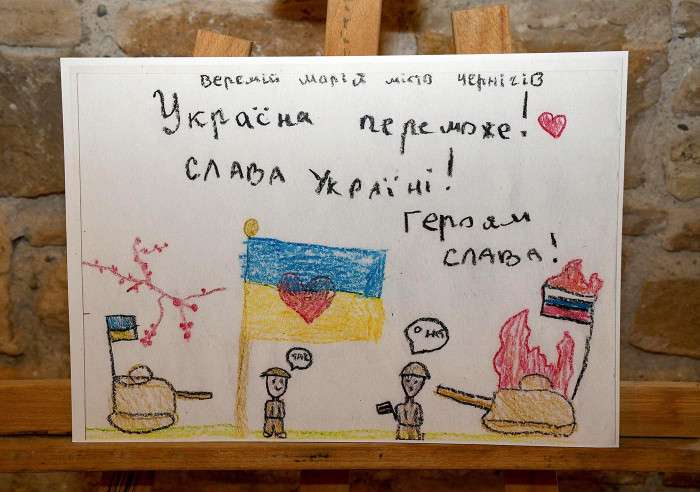 Веремій Марія місто Чернігів
Україна переможе!
СЛАВА Україні!
Героям
СЛАВА!
ТАК